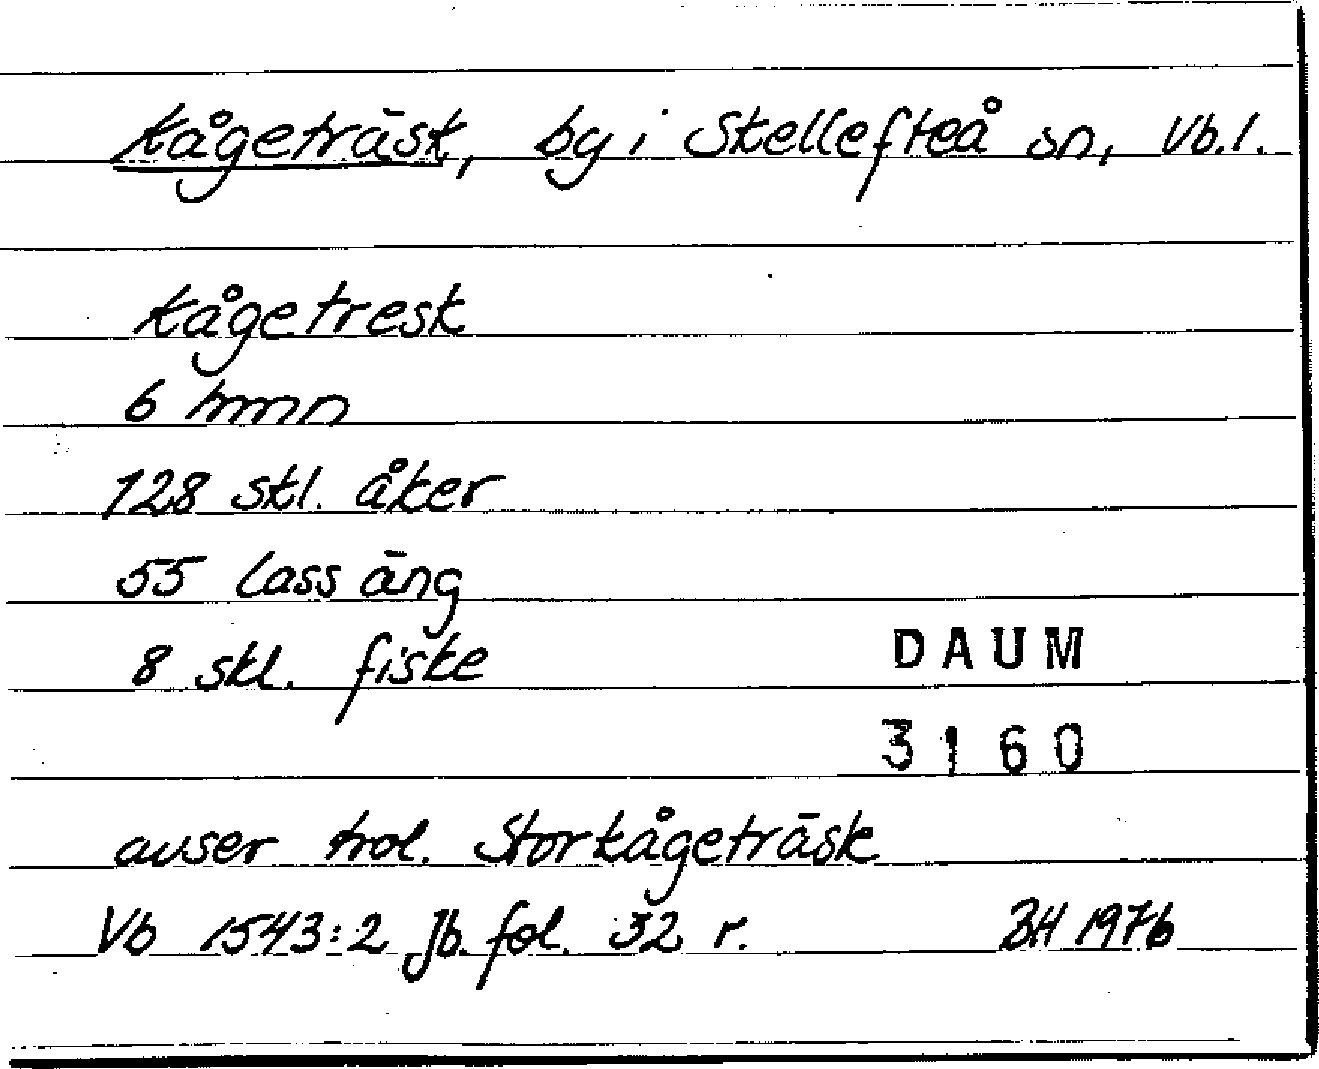 Kågeträsk, by i Skellefteå sn, Vb.l.
Kågetresk
6 hmn
128 skl. åker
55 lass äng
8 skl. fiske
DAUM
3160
avser trol. Storkågeträsk
Vb 1543:2 Jb. fol. 32 r. BH 1976